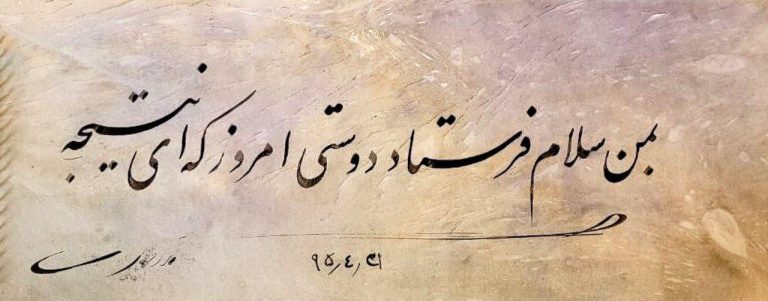 بمن سلام فرستاد دوستی امروز که ای نتیجه
۹۵٫۴٫۳۱